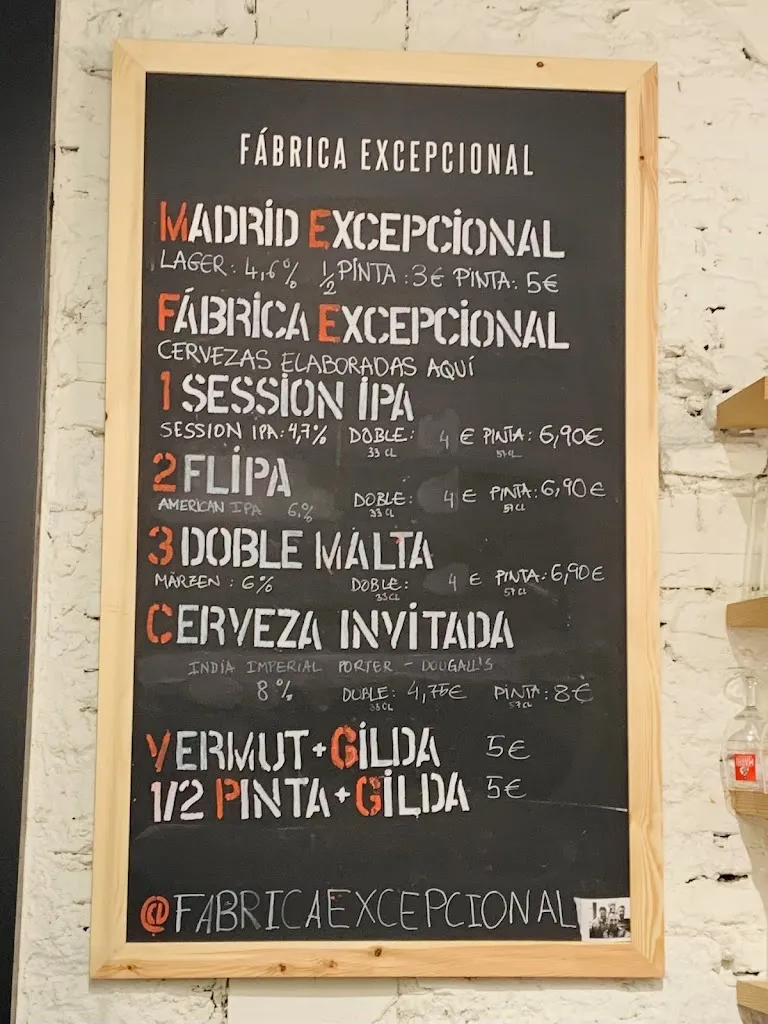 FÁBRICA EXCEPCIONAL
MADRID EXCEPCIONAL
LAGER: 4,6% 1/2 PINTA: 3€ PINTA: 5€
FÁBRICA EXCEPCIONAL
CERVEZAS ELABORADAS AQUÍ
1 SESSION IPA
SESSION IPA: 4,7% DOBLE: 4 € PINTA: 6,90€
33 CL 57 CL
2 FLIPA
AMERICAN IPA 6% DOBLE: 4 € PINTA: 6,90€
33 CL 57 CL
3 DOBLE MALTA
MÄRZEN: 6% DOBLE: 4 € PINTA: 6,90€
33 CL 57 CL
CERVEZA INVITADA
INDIA IMPERIAL PORTER - DOUGALL'S
8% DOBLE: 4,75€ PINTA: 8€
33 CL 57 CL
VERMUT + GILDA 5€
1/2 PINTA + GILDA 5€
@FABRICAEXCEPCIONAL